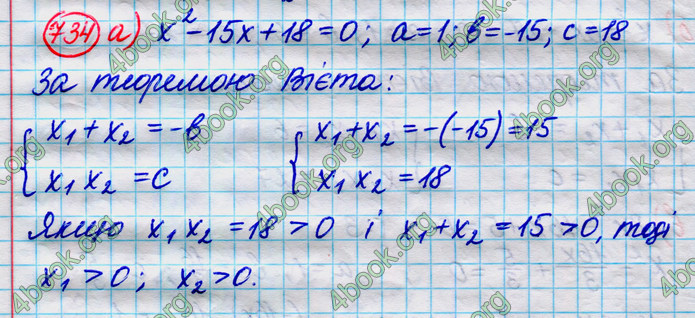 734 а) x² - 15x + 18 = 0; a = 1; b = -15; c = 18
За теоремою Вієта:
{ x₁ + x₂ = -b { x₁ + x₂ = -(-15) = 15
{ x₁ x₂ = c { x₁ x₂ = 18
Якщо x₁ x₂ = 18 > 0 і x₁ + x₂ = 15 > 0, тоді
x₁ > 0; x₂ > 0.
4book.org